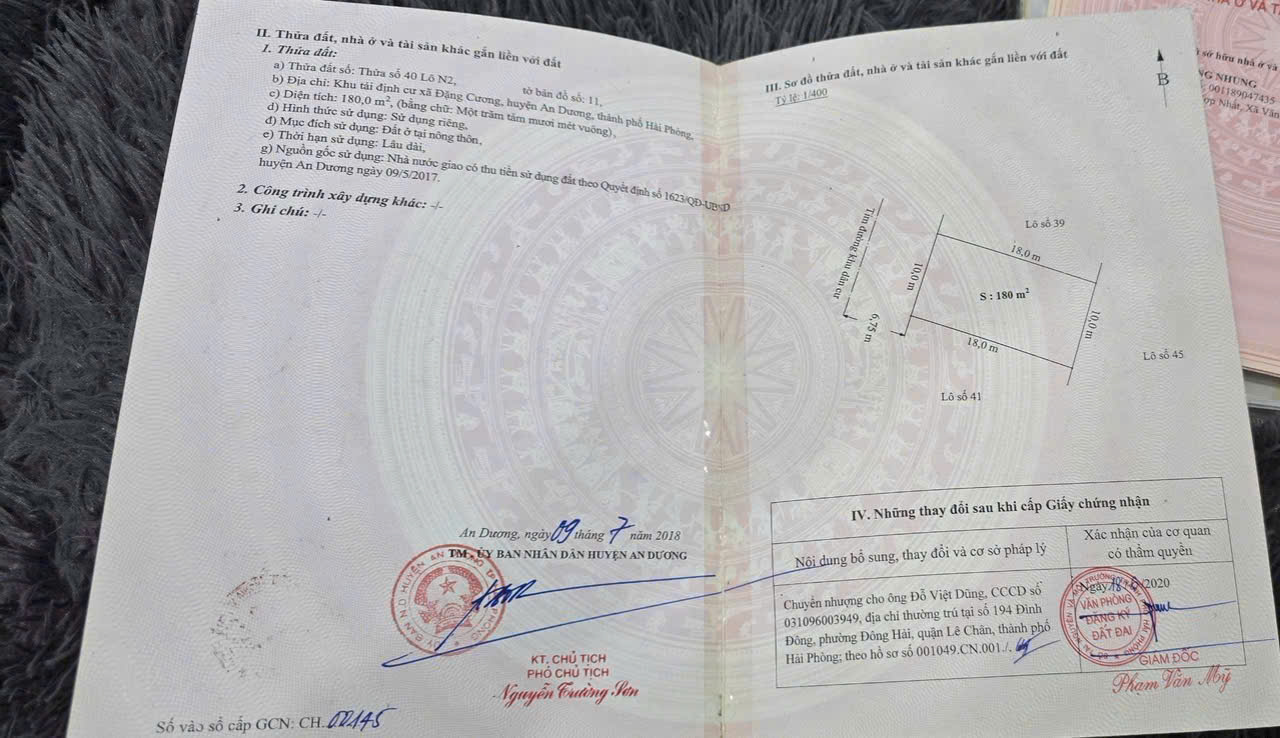 II. Thửa đất, nhà ở và tài sản khác gắn liền với đất
1. Thửa đất:
a) Thửa đất số: Thửa số 40 Lô N2, tờ bản đồ số: 11,
b) Địa chỉ: Khu tái định cư xã Đặng Cương, huyện An Dương, thành phố Hải Phòng,
c) Diện tích: 180,0 m², (bằng chữ: Một trăm tám mươi mét vuông),
d) Hình thức sử dụng: Sử dụng riêng,
đ) Mục đích sử dụng: Đất ở tại nông thôn,
e) Thời hạn sử dụng: Lâu dài,
g) Nguồn gốc sử dụng: Nhà nước giao có thu tiền sử dụng đất theo Quyết định số 1623/QĐ-UBND
huyện An Dương ngày 09/5/2017.
2. Công trình xây dựng khác: -/-
3. Ghi chú: -/-
An Dương, ngày 09 tháng 7 năm 2018
TM. ỦY BAN NHÂN DÂN HUYỆN AN DƯƠNG
KT. CHỦ TỊCH
PHÓ CHỦ TỊCH
Nguyễn Trường Sơn
Số vào sổ cấp GCN: CH.00145
III. Sơ đồ thửa đất, nhà ở và tài sản khác gắn liền với đất
Tỷ lệ: 1/400
B
Tim đường khu dân cư
6.75 m
Lô số 39
18,0 m
10,0 m
S : 180 m²
10,0 m
18,0 m
Lô số 45
Lô số 41
IV. Những thay đổi sau khi cấp Giấy chứng nhận
Nội dung bổ sung, thay đổi và cơ sở pháp lý
Xác nhận của cơ quan
có thẩm quyền
Chuyển nhượng cho ông Đỗ Việt Dũng, CCCD số
031096003949, địa chỉ thường trú tại số 194 Đình
Đông, phường Đông Hải, quận Lê Chân, thành phố
Hải Phòng; theo hồ sơ số 001049.CN.001./.
Ngày 18 2020
VĂN PHÒNG
ĐĂNG KÝ
ĐẤT ĐAI
GIÁM ĐỐC
Phạm Văn Mỹ
sở hữu nhà ở và
NG NHUNG
: 001189047435
ợp Nhất, Xã Văn